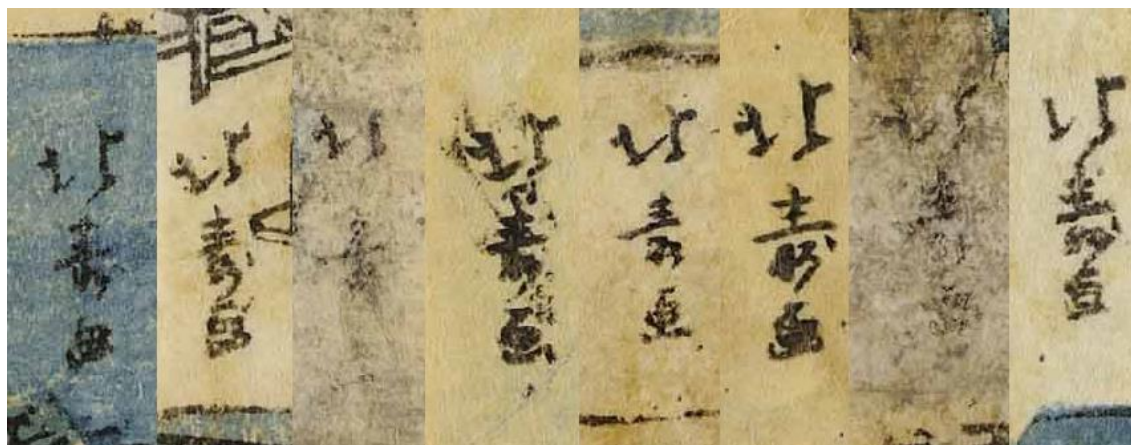 北壽画
北壽画
北壽
北壽画
北壽画
北壽画
北壽画
北壽画